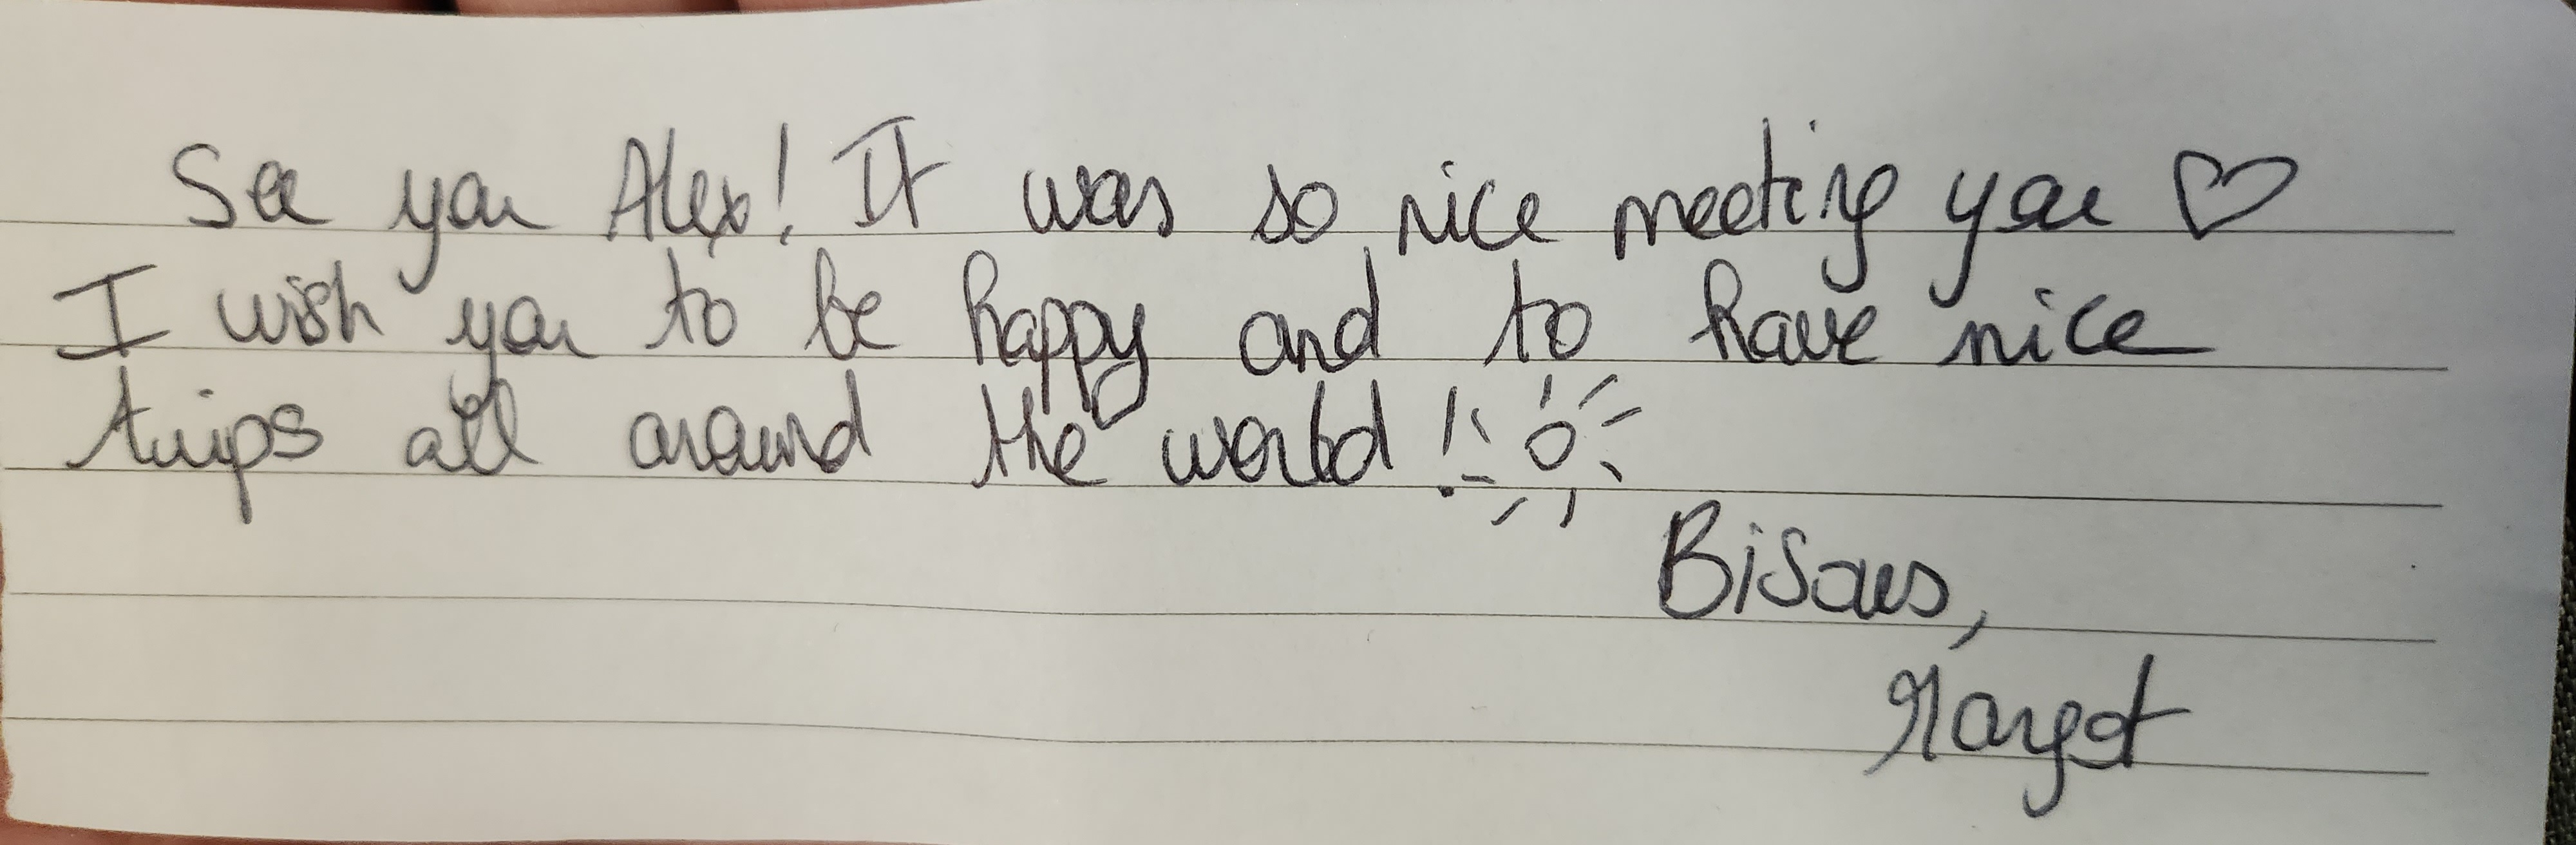 See you Alex! It was so nice meeting you ♡
I wish you to be happy and to have nice
trips all around the world !
Bisous,
Margot